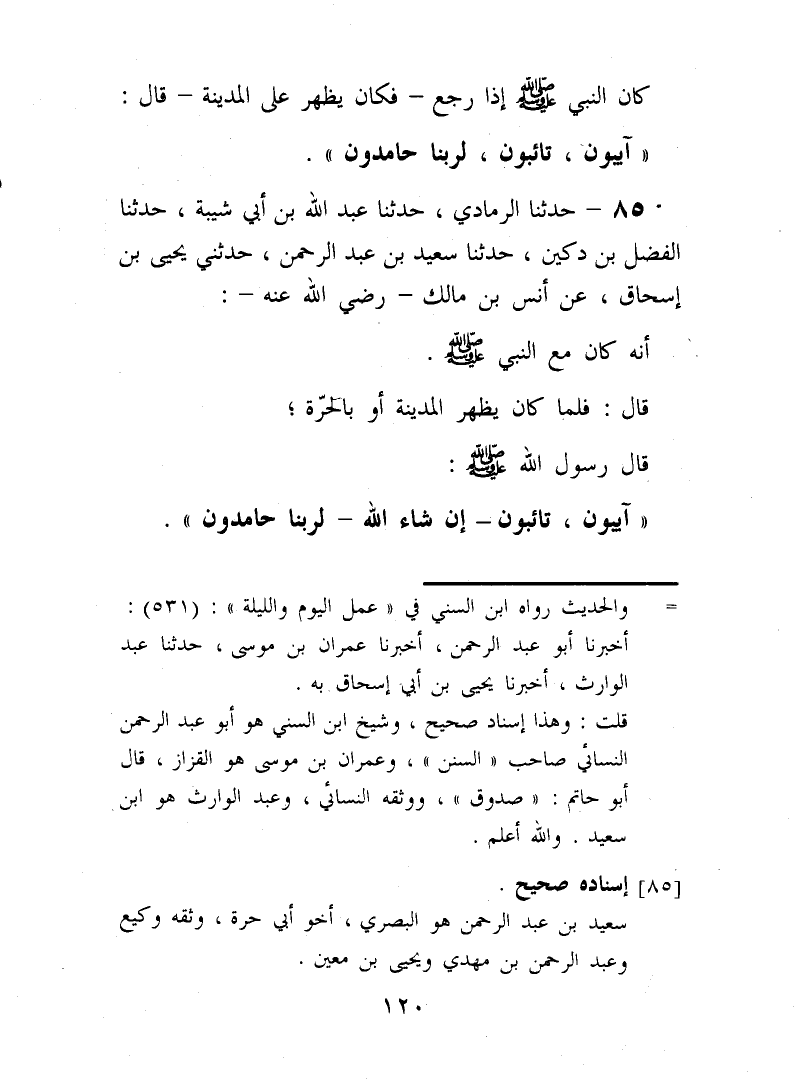 كان النبي ﷺ إذا رجع – فكان يظهر على المدينة – قال :
« آيبون ، تائبون ، لربنا حامدون » .
٨٥ – حدثنا الرمادي ، حدثنا عبد الله بن أبي شيبة ، حدثنا
الفضل بن دكين ، حدثنا سعيد بن عبد الرحمن ، حدثني يحيى بن
إسحاق ، عن أنس بن مالك – رضي الله عنه – :
أنه كان مع النبي ﷺ .
قال : فلما كان يظهر المدينة أو بالحرّة ؛
قال رسول الله ﷺ :
« آيبون ، تائبون – إن شاء الله – لربنا حامدون » .
= والحديث رواه ابن السني في « عمل اليوم والليلة » : (٥٣١) :
أخبرنا أبو عبد الرحمن ، أخبرنا عمران بن موسى ، حدثنا عبد
الوارث ، أخبرنا يحيى بن أبي إسحاق به .
قلت : وهذا إسناد صحيح ، وشيخ ابن السني هو أبو عبد الرحمن
النسائي صاحب « السنن » ، وعمران بن موسى هو القزاز ، قال
أبو حاتم : « صدوق » ، ووثقه النسائي ، وعبد الوارث هو ابن
سعيد . والله أعلم .
[٨٥] إسناده صحيح .
سعيد بن عبد الرحمن هو البصري ، أخو أبي حرة ، وثقه وكيع
وعبد الرحمن بن مهدي ويحيى بن معين .
١٢٠